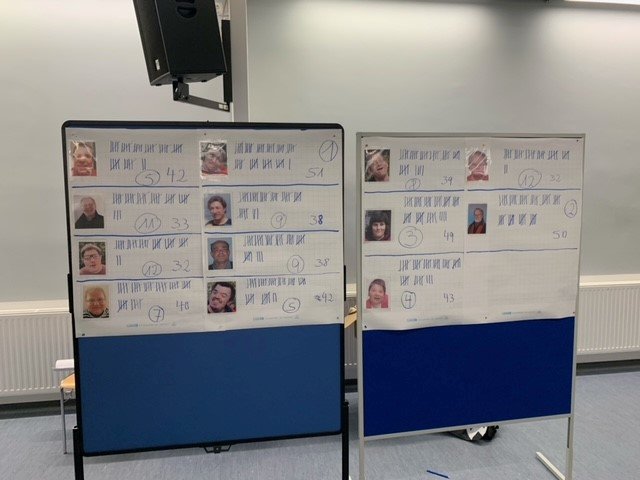 5 42
1
51
11 33
9 38
12 32
9 38
7 40
5 42
39
12 32
3 49
2
50
4 43